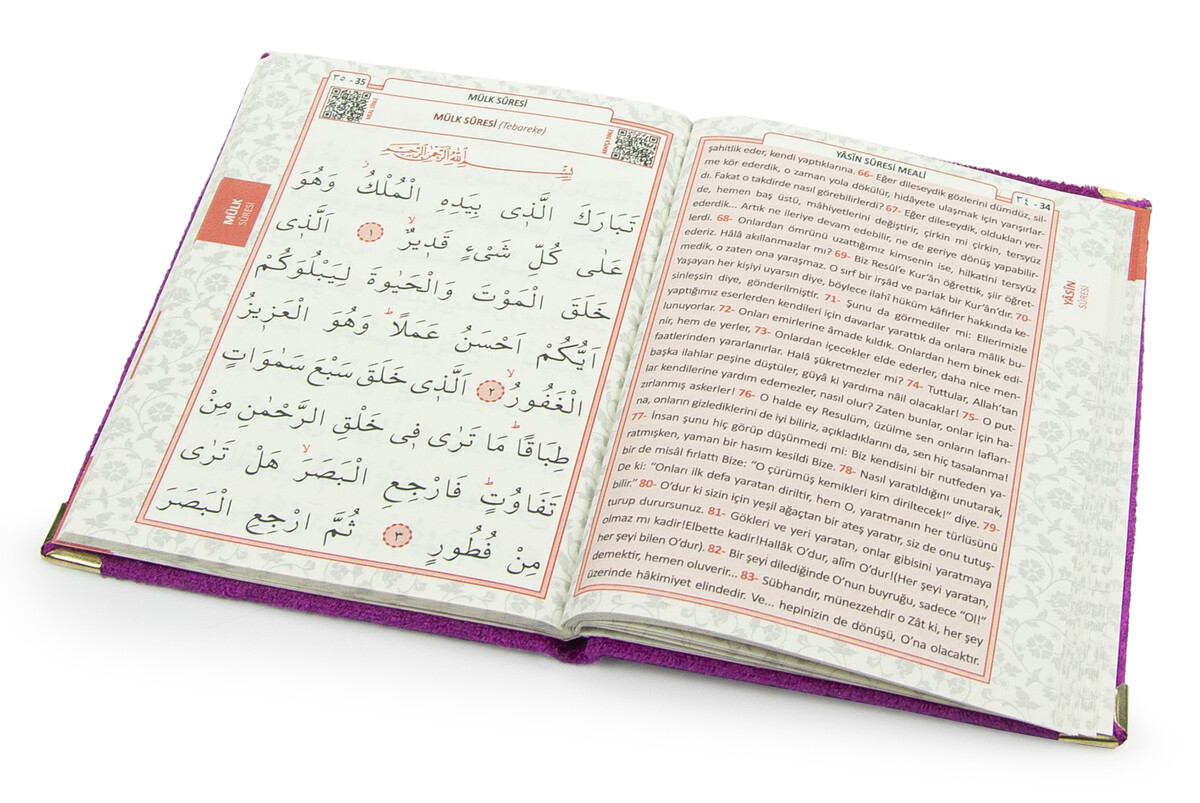 ٣٤ - 34
YÂSÎN SÛRESİ MEALİ
şahitlik eder, kendi yaptıklarına. 66- Eğer dileseydik gözlerini dümdüz, sil-
me kör ederdik, o zaman yola dökülür, hidâyete ulaşmak için yarışırlar-
dı. Fakat o takdirde nasıl görebilirlerdi? 67- Eğer dileseydik, oldukları yer-
de, hemen baş üstü, mahiyetlerini değiştirir, çirkin mi çirkin, tersyüz
ederdik... Artık ne ileriye devam edebilir, ne de geriye dönüş yapabilir-
lerdi. 68- Onlardan ömrünü uzattığımız kimsenin ise, hilkatini tersyüz
ederiz. Hâlâ akıllanmazlar mı? 69- Biz Resûl'e Kur'ân öğrettik, şiir öğret-
medik, o zaten ona yaraşmaz. O sırf bir irşâd ve parlak bir Kur'ân'dır. 70-
Yaşayan her kişiyi uyarsın diye, böylece ilahî hüküm kâfirler hakkında ke-
sinleşsin diye, gönderilmiştir. 71- Şunu da görmediler mi: Ellerimizle
yaptığımız eserlerden kendileri için davarlar yarattık da onlara mâlik bu-
lunuyorlar. 72- Onları emirlerine âmade kıldık. Onlardan hem binek edi-
nir, hem de yerler, 73- Onlardan içecekler elde ederler, daha nice men-
faatlerinden yararlanırlar. Halâ şükretmezler mi? 74- Tuttular, Allah'tan
başka ilahlar peşine düştüler, güyâ ki yardıma nâil olacaklar! 75- O put-
lar kendilerine yardım edemezler, nasıl olur? Zaten bunlar, onlar için ha-
zırlanmış askerler! 76- O halde ey Resulüm, üzülme sen onların lafları-
na, onların gizlediklerini de iyi biliriz, açıkladıklarını da, sen hiç tasalanma!
77- İnsan şunu hiç görüp düşünmedi mi: Biz kendisini bir nutfeden ya-
ratmışken, yaman bir hasım kesildi Bize. 78- Nasıl yaratıldığını unutarak,
bir de misâl fırlattı Bize: "O çürümüş kemikleri kim diriltecek!" diye. 79-
De ki: "Onları ilk defa yaratan diriltir, hem O, yaratmanın her türlüsünü
bilir." 80- O'dur ki sizin için yeşil ağaçtan bir ateş yaratır, siz de onu tutuş-
turup durursunuz. 81- Gökleri ve yeri yaratan, onlar gibisini yaratmaya
olmaz mı kadir!Elbette kadir!Hallâk O'dur, alîm O'dur!(Her şeyi yaratan,
her şeyi bilen O'dur). 82- Bir şeyi dilediğinde O'nun buyruğu, sadece "Ol!"
demektir, hemen oluverir... 83- Sübhandır, münezzehdir o Zât ki, her şey
üzerinde hâkimiyet elindedir. Ve... hepinizin de dönüşü, O'na olacaktır.
YÂSÎN
SÛRESİ
٣٥ - 35
MÜLK SÛRESİ
MÜLK SÛRESİ (Tebareke)
بِسْمِ اللّٰهِ الرَّحْمٰنِ الرَّحِيمِ
تَبَارَكَ الَّذٖى بِيَدِهِ الْمُلْكُ وَهُوَ
عَلٰى كُلِّ شَىْءٍ قَدٖيرٌ ١ اَلَّذٖى
خَلَقَ الْمَوْتَ وَالْحَيٰوةَ لِيَبْلُوَكُمْ
اَيُّكُمْ اَحْسَنُ عَمَلًا وَهُوَ الْعَزٖيزُ
الْغَفُورُ ٢ اَلَّذٖى خَلَقَ سَبْعَ سَمٰوَاتٍ
طِبَاقًا مَا تَرٰى فٖى خَلْقِ الرَّحْمٰنِ مِنْ
تَفَاوُتٍ فَارْجِعِ الْبَصَرَ هَلْ تَرٰى
مِنْ فُطُورٍ ٣ ثُمَّ ارْجِعِ الْبَصَرَ
MÜLK
SÛRESİ